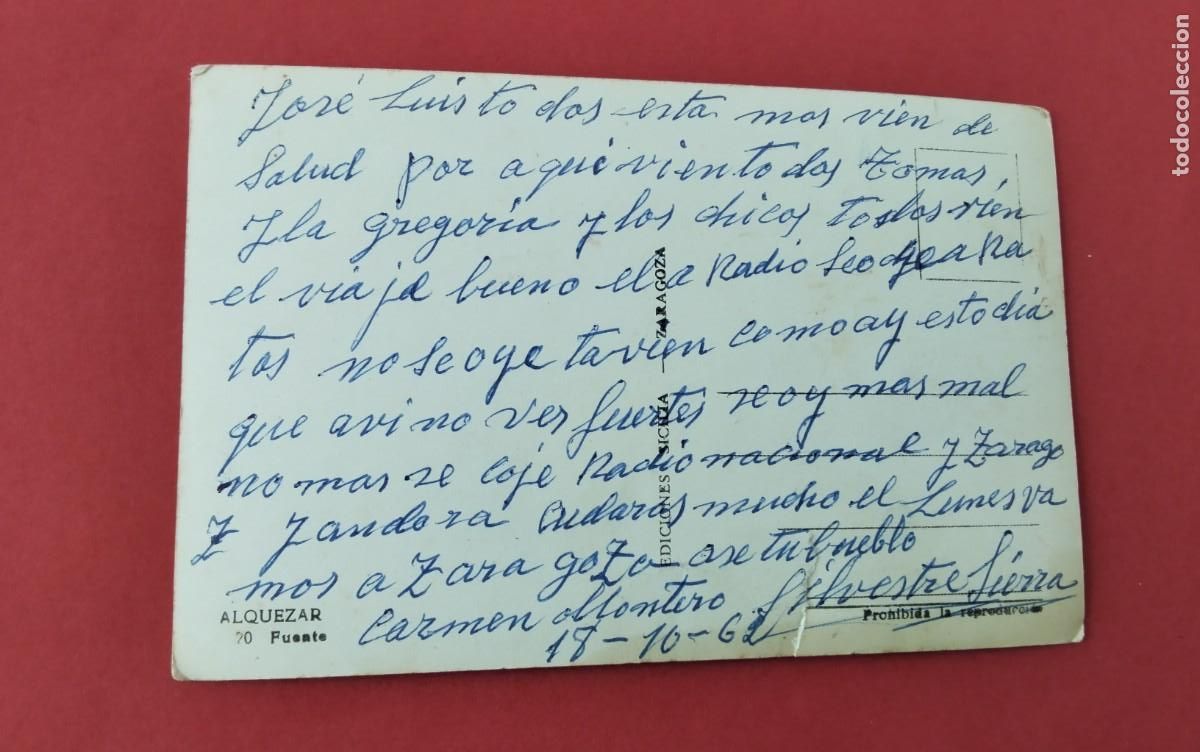 José Luis to dos esta mos vien de
Salud por aqui vien to dos Tomas,
Y la gregoria y los chicos todos vien
el viaje bueno el a Radio Se oye a Ra
tos no se oye ta vien como ay esto dia
que avi no ver fuertes se oy mas mal
no mas se coje Radio nacional y Zarago
Z Yandora Cudaras mucho el Lunes va
mos a Zaragoza ase tu pueblo
Carmen Montero Silvestre Sierra
18-10-62
ALQUEZAR
20 Fuente
EDICIONES SICILIA - ZARAGOZA
Prohibida la reproducción
todocoleccion